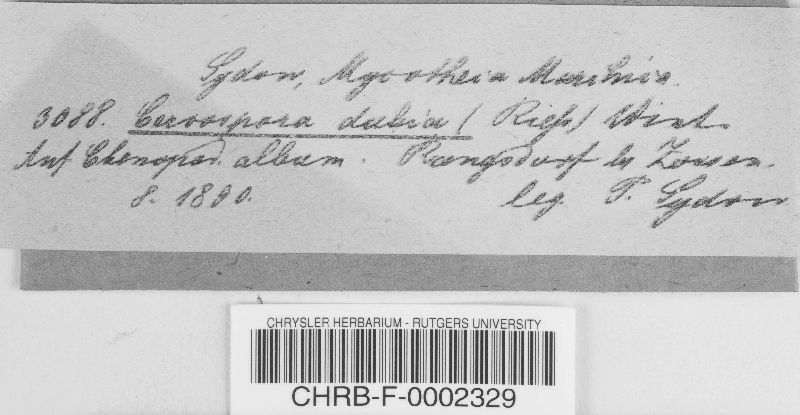 Sydow, Mycotheca Marchica.
3088. Cercospora dubia (Riess) Wint.
Auf Chenopod. album. Rangsdorf b. Zossen.
8. 1890. leg. P. Sydow
CHRYSLER HERBARIUM - RUTGERS UNIVERSITY
CHRB-F-0002329